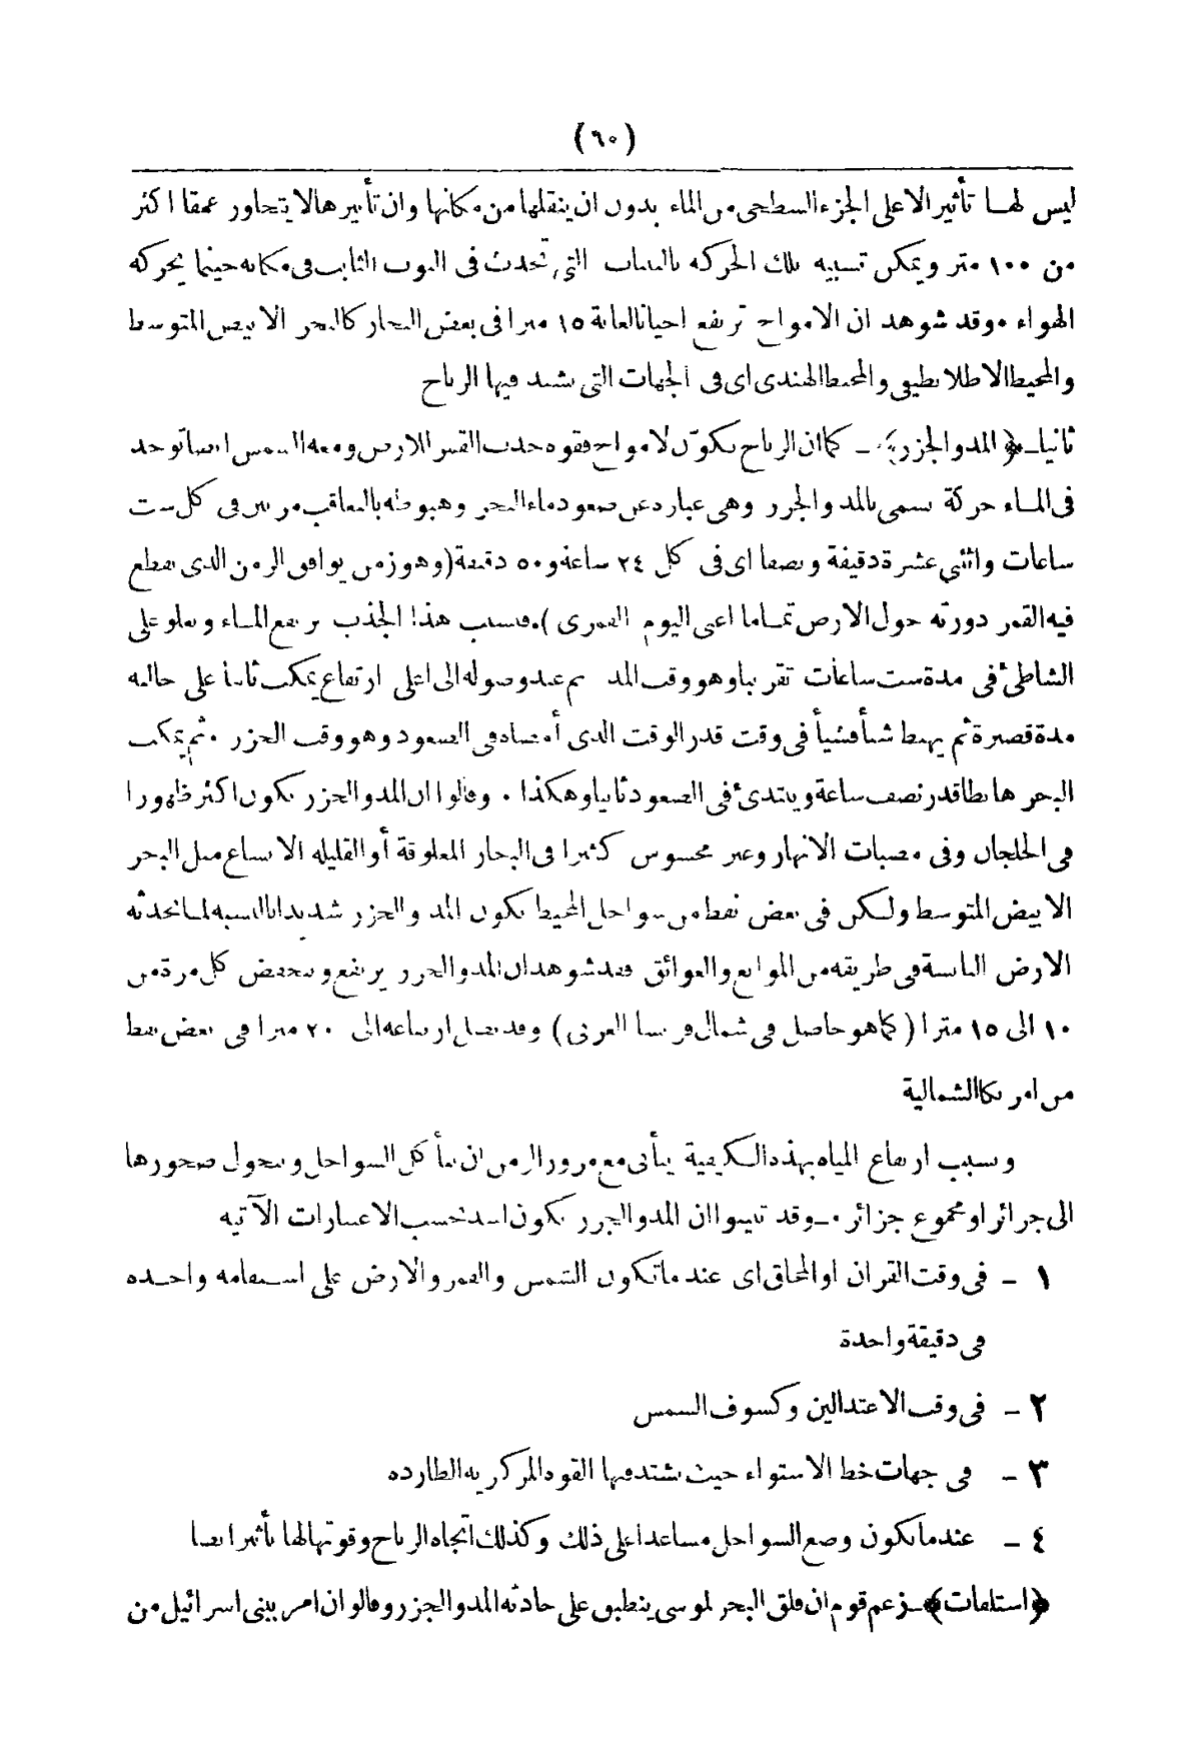 (٦٠)
ليس لها تأثير الا على الجزء السطحى من الماء بدون ان ينقلها من مكانها وان تأثيرها لا يتجاوز عمقا اكثر
من ١٠٠ متر ويمكن تشبيه تلك الحركه بالثنيات التى تحدث فى الثوب الثابت فى مكانه حينما يحركه
الهواء ٠ وقد شوهد ان الامواج ترتفع احيانا لغاية ١٥ مترا فى بعض البحار كالبحر الابيض المتوسط
والمحيط الاطلانطيقى والمحيط الهندى اى فى الجهات التى تشتد فيها الرياح
ثانيا ـ ﴿ المد والجزر ﴾ ـ كما ان الرياح تكوّن الامواج فقوه جذب القمر للارض ومعه الشمس ايضا توجد
فى الماء حركة تسمى بالمد والجزر وهى عباره عن صعود ماء البحر وهبوطه بالتعاقب مرتين فى كل ست
ساعات واثنى عشرة دقيقة ونصفا اى فى كل ٢٤ ساعة و٥٠ دقيقة (وهو زمن يوافق الزمن الذى يقطع
فيه القمر دورته حول الارض تماما اعنى اليوم القمرى ) ٠ فبسبب هذا الجذب يرتفع الماء ويعلو على
الشاطئ فى مدة ست ساعات تقريبا وهو وقت المد ثم عند وصوله الى اعلى ارتفاع يمكث ثابتا على حاله
مدة قصيرة ثم يهبط شيأ فشيأ فى وقت قدر الوقت الذى أمضاه فى الصعود وهو وقت الجزر ٠ ثم يمكث
البحر هابطا قدر نصف ساعة ويبتدئ فى الصعود ثانيا وهكذا ٠ وقالوا ان المد والجزر يكون اكثر ظهورا
فى الخلجان وفى مصبات الانهار وغير محسوس كثيرا فى البحار المغلوقة أو القليله الاتساع مثل البحر
الابيض المتوسط ولكن فى بعض نقط من سواحل المحيط يكون المد والجزر شديدا بالنسبه لما تحدثه
الارض اليابسة فى طريقه من الموانع والعوائق فقد شوهد ان المد والجزر يرتفع وينخفض كل مرة من
١٠ الى ١٥ مترا ( كما هو حاصل فى شمال فرنسا الغربى ) وقد يصل ارتفاعه الى ٢٠ مترا فى بعض نقط
من امريكا الشمالية
وبسبب ارتفاع المياه بهذه الكيفية يتأتى مع مرور الزمن ان تتأكل السواحل وتتحول صخورها
الى جزائر او مجموع جزائر ٠ ـ وقد تبينوا ان المد والجزر يكون اشد بحسب الاعتبارات الآتيه
١ ـ فى وقت القران او المحاق اى عند ما تكون الشمس والقمر والارض على استقامه واحده
فى دقيقة واحدة
٢ ـ فى وقت الاعتدالين وكسوف الشمس
٣ ـ فى جهات خط الاستواء حيث تشتد فيها القوه المركزيه الطارده
٤ ـ عند ما يكون وضع السواحل مساعدا على ذلك وكذلك اتجاه الرياح وقوتها لها تأثير ايضا
﴿ استلفات ﴾ ـ زعم قوم ان فلق البحر لموسى ينطبق على حادثه المد والجزر وقالوا ان امر ببنى اسرائيل من